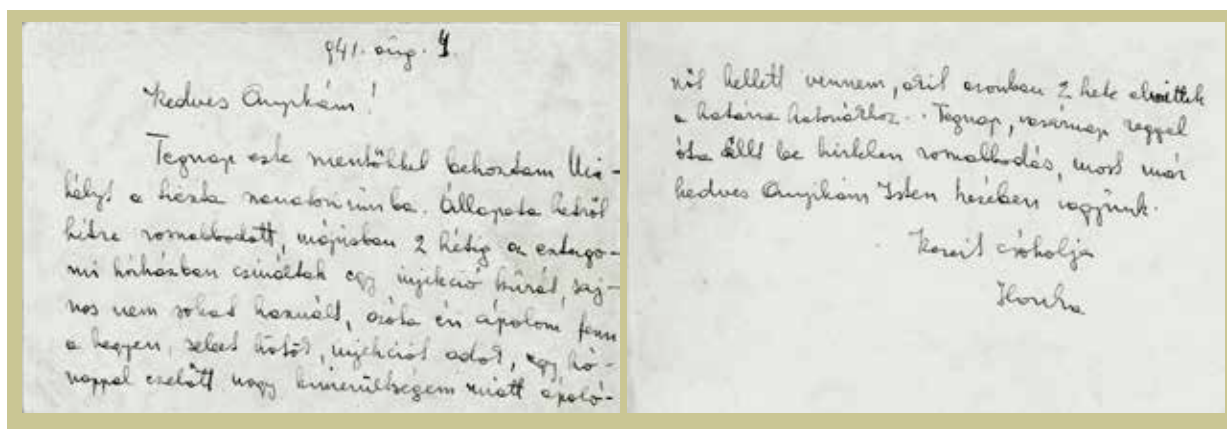 941. aug. 4.
Kedves Anyikám!
Tegnap este mentőkkel behoztam Mi-
hályt a hézta sanatoriumba. Állapota hétről
hétre romalbodott, májusban 2 hétig az esztergo-
mi kórházban csináltak egy injekció kúrát, saj-
nos nem sokat használt, azóta én ápolom fenn
a hegyen, sebet kötöt, injekciót adot, egy hó-
nappal ezelőtt nagy kimerültségem miatt ápoló-
nőt kellett vennem, azit azonban 2 hete elvittek
a határra katonákhoz. Tegnap, vasárnap reggel
óta állt be hirtelen romalbodás, most már
kedves Anyikám Isten kezében vagyunk.
Kezeit csókolja
Ilonka